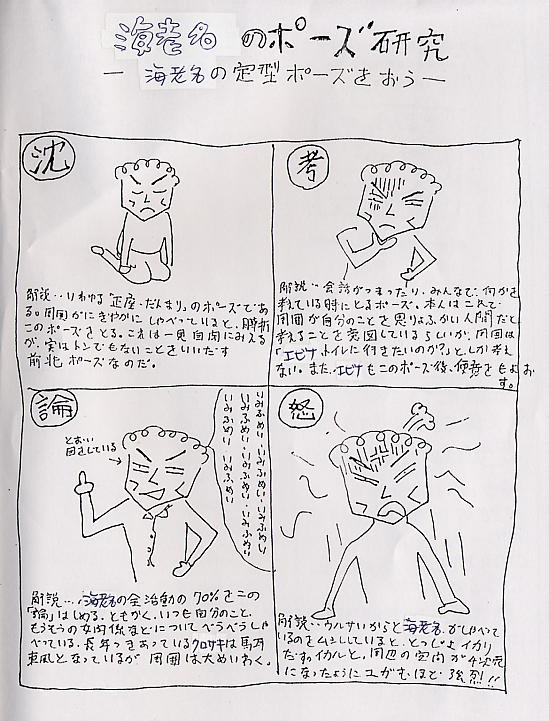 海老名のポーズ研究
― 海老名の定型ポーズをおう ―
沈
解説‥いわゆる「正座・だんまり」のポーズであ
る。周囲がにぎやかにしゃべっていると、
このポーズをとる。これは一見自閉にみえる
が、実はトンでもないことをいいだす
前兆ポーズなのだ。
考
解説‥会話がつまったり、みんなで、何かを
考えている時にとるポーズ。本人はこれで
周囲が自分のことを思りょぶかい人間だと
考えることを意図しているらしいが、周囲は
「エビナトイレに行きたいのか?」としか考え
ない。また、エビナもこのポーズ後、便意をもよお
す。
論
とおい
目をしている
いみふめい・いみふめい・いみふめい
いみふめい・いみふめい・いみふめい
いみふめい いみふめい
解説‥海老名の全活動の70%をこの
「論」はしめる。ともかく、いつも自分のこと、
もうもうの女関係などについてべらべらしゃ
べっている。長年つきあっているクロサキは馬耳
東風となっているが 周囲は大めいわく。
怒
解説‥ウルサいからと海老名がしゃべって
いるのをムシしていると、とつじょイカリ
だす。イカルと、周辺の空間が4次元
になったようにユガむほど強烈!!